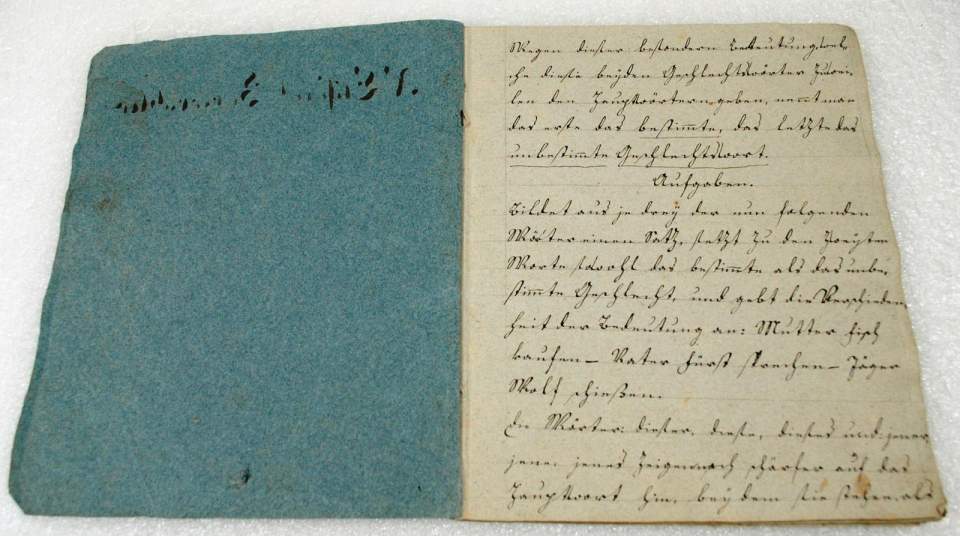 Wegen dieser besondern Bedeutung, wel-
che diese beyden Geschlechtswörter zuwei-
len den Hauptwörtern geben, nennt man
das erste das bestimmte, das letzte das
unbestimmte Geschlechtswort.
Aufgaben.
Bildet aus je drey der nun folgenden
Wörter einen Satz, setzt zu den zweyten
Worte sowohl das bestimmte als das unbe-
stimmte Geschlecht, und gebt die Verschieden-
heit der Bedeutung an: Mutter Fisch
kaufen – Vater Fürst sprechen – Jäger
Wolf schießen.
Die Wörter: dieser, diese, dieses und: jener,
jene, jenes zeigen noch schärfer auf das
Hauptwort hin, bey dem sie stehen, als